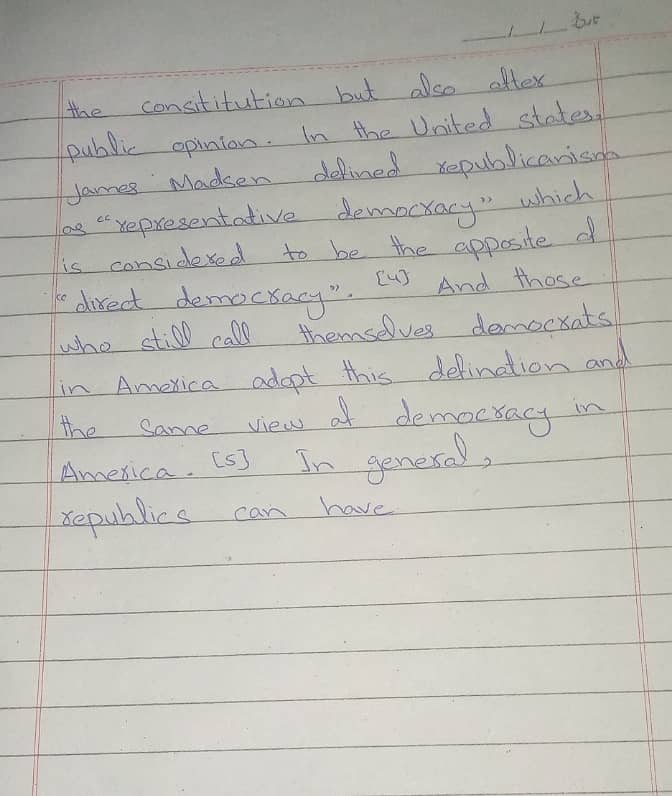 the consititution but also after
public opinion. In the United states,
James Madsen defined republicanism
as "representative democracy" which
is considered to be the apposite of
"direct democracy". [4] And those
who still call themselves democrats
in America adapt this defination and
the same view of democracy in
America. [5] In general,
republics can have